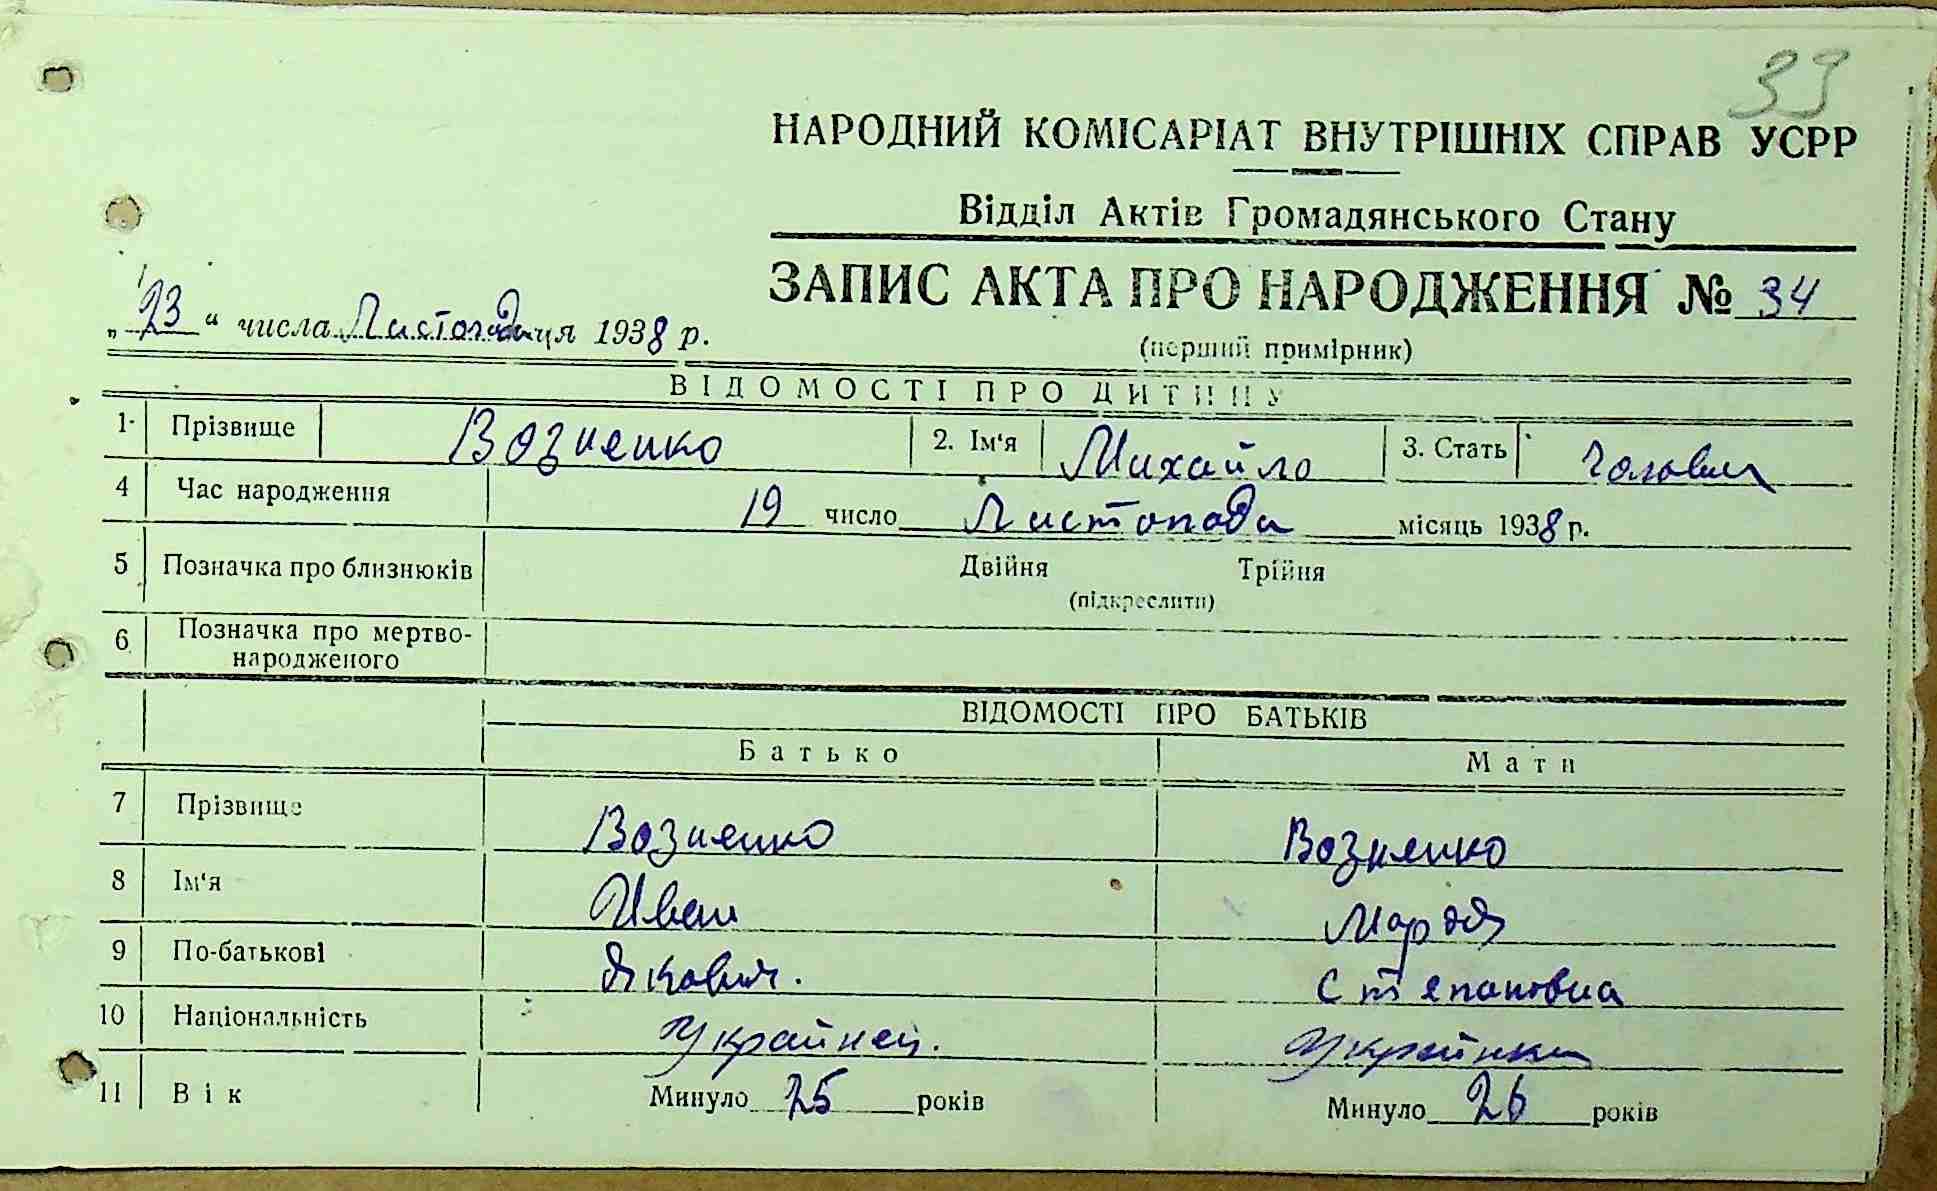 33
НАРОДНИЙ КОМІСАРІАТ ВНУТРІШНІХ СПРАВ УСРР
Відділ Актів Громадянського Стану
ЗАПИС АКТА ПРО НАРОДЖЕННЯ № 34
(перший примірник)
„23“ числа Листопадця 1938 р.
ВІДОМОСТІ ПРО ДИТИНУ
1. Прізвище Возненко 2. Ім'я Михайло 3. Стать Чолович
4 Час народження 19 число Листопада місяць 1938 р.
5 Позначка про близнюків Двійня Трійня
(підкреслити)
6 Позначка про мертво-
народженого
ВІДОМОСТІ ПРО БАТЬКІВ
Батько Мати
7 Прізвище Возненко Возненко
8 Ім'я Иван
9 По-батькові Якович. Степановна
10 Національність Украйнец. Украйнка
11 Вік Минуло 25 років Минуло 26 років